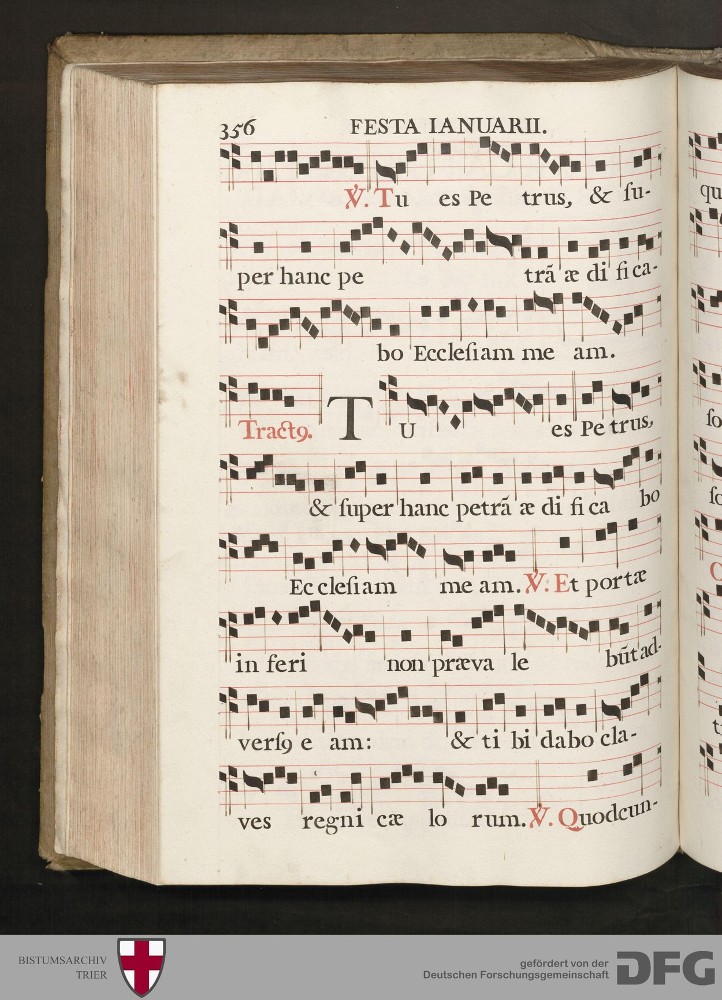 356 FESTA IANUARII.
℣. Tu es Pe trus, & ſu-
per hanc pe trã æ di fi ca-
bo Eccleſiam me am.
Tractꝰ. TU es Pe trus,
& ſuper hanc petrã æ di fi ca bo
Ec cleſiam me am. ℣. Et portæ
in feri non præva le bũt ad-
verſꝰ e am: & ti bi dabo cla-
ves regni cæ lo rum. ℣. Quodcun-
qu
ſo
ſo
BISTUMSARCHIV
TRIER
gefördert von der
Deutschen Forschungsgemeinschaft
DFG